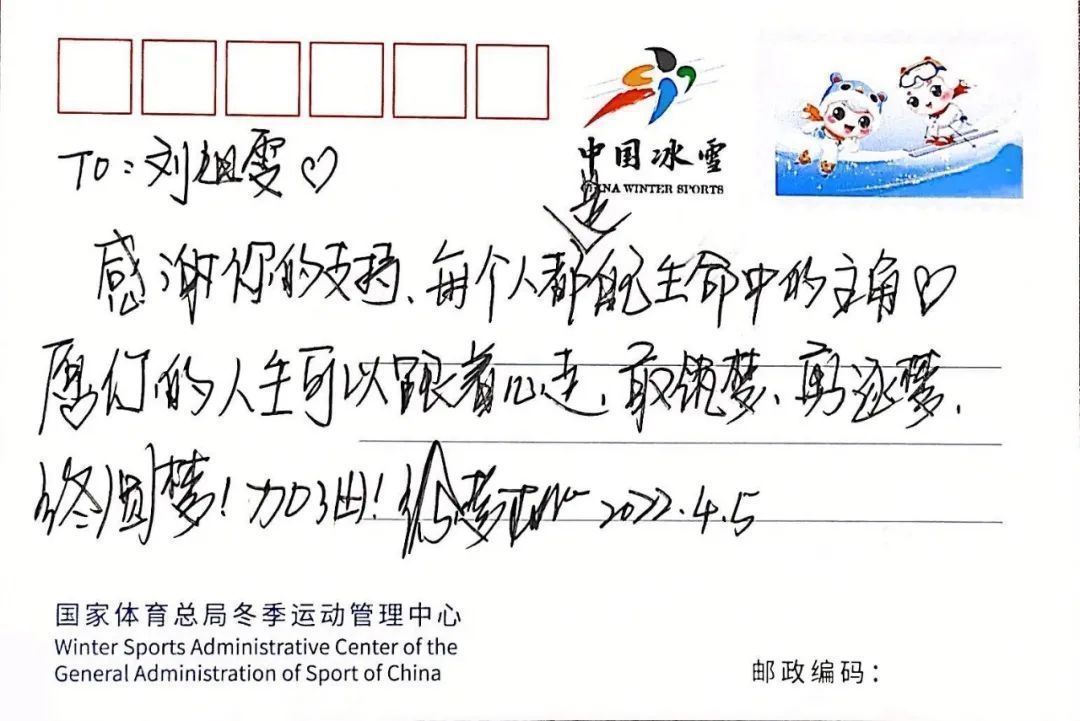 中国冰雪
CHINA WINTER SPORTS
TO:刘祖雯♡
感谢你的支持、每个人都是自己生命中的主角♡
愿你的人生可以跟着心走,敢筑梦、勇逐梦,
终圆梦!加油! 2022.4.5
国家体育总局冬季运动管理中心
Winter Sports Administrative Center of the
General Administration of Sport of China
邮政编码: